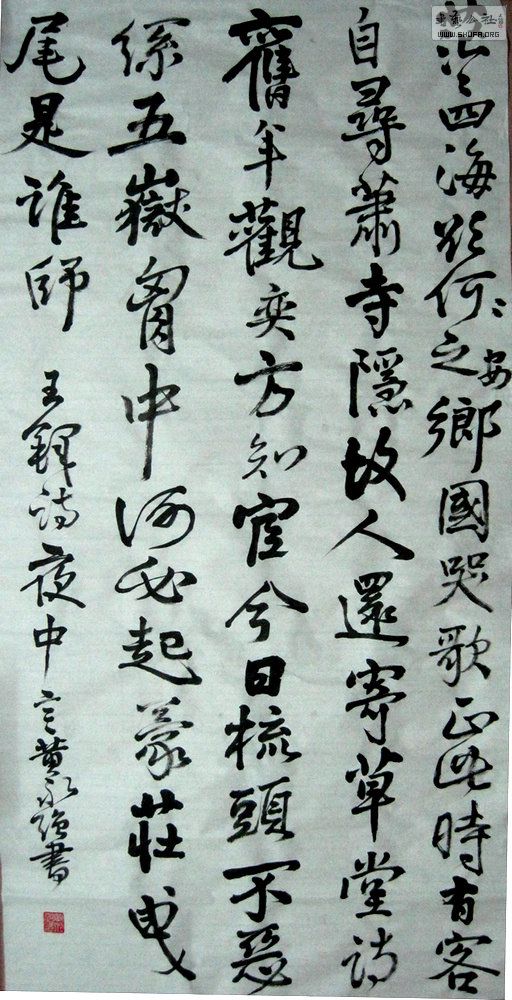 書藝公社
WWW.SHUFA.ORG
茫〻四海欲何之鄉國哭歌正此時有客
安
自尋蕭寺隱故人還寄草堂詩
舊年觀奕方知宦今日梳頭不惡
絲五嶽胷中何必起蒙莊曳
尾是誰師
王鐸詩夜中言黃永強書